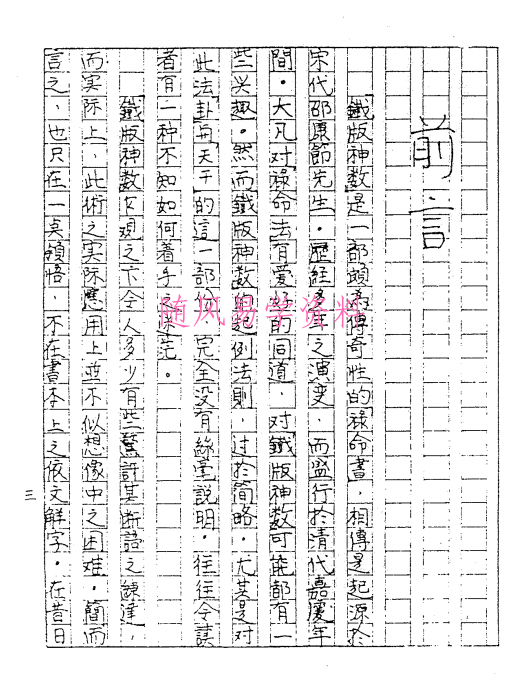 前言
鐵版神数是一部頗為傳奇性的祿命書，相傳是起源於
宋代邵康節先生。歷經多年之演变，而盛行於清代嘉慶年
間。大凡对祿命法有爱好的同道，对鐵版神数可能都有一
些兴趣。然而鐵版神数的起例法則，过於简略。尤其是对
此法「卦与天干」的這一部份，完全没有絲毫説明。往往令读
者有一种不知如何着手
鐵版神数之下令人多少有些驚訝其断語之鍊達，
而实际上，此術之实际應用上並不似想像中之困难。簡而
言之，也只在一桌頓悟，不在書本上之依文解字。在昔日
三
随风易学资料